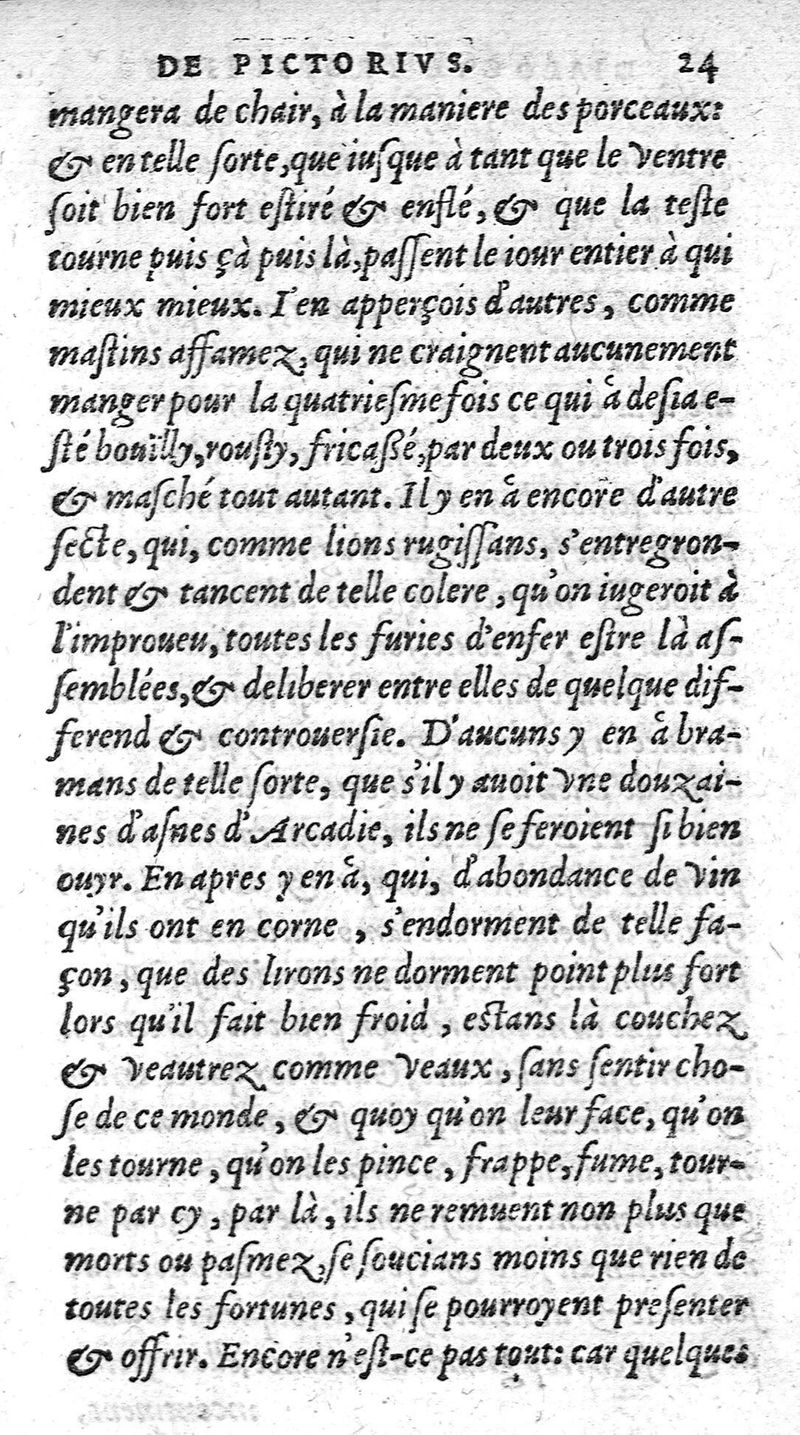 DE PICTORIVS. 24
mangera de chair, à la maniere des porceaux:
& en telle ſorte, que iuſque à tant que le ventre
ſoit bien fort eſtiré & enflé, & que la teſte
tourne puis çà puis là, paſſent le iour entier à qui
mieux mieux. I'en apperçois d'autres, comme
maſtins affamez, qui ne craignent aucunement
manger pour la quatrieſme fois ce qui å deſia e-
ſté bouïlly, rouſty, fricaßé, par deux ou trois fois,
& maſché tout autant. Il y en å encore d'autre
ſecte, qui, comme lions rugiſſans, s'entregron-
dent & tancent de telle colere, qu'on iugeroit à
l'improueu, toutes les furies d'enfer eſtre là aſ-
ſemblées, & deliberer entre elles de quelque dif-
ferend & controuerſie. D'aucuns y en å bra-
mans de telle ſorte, que s'il y auoit vne douzai-
nes d'aſnes d'Arcadie, ils ne ſe feroient ſi bien
ouyr. En apres y en å, qui, d'abondance de vin
qu'ils ont en corne, s'endorment de telle fa-
çon, que des lirons ne dorment point plus fort
lors qu'il fait bien froid, estans là couchez
& veautrez comme veaux, ſans ſentir cho-
ſe de ce monde, & quoy qu'on leur face, qu'on
les tourne, qu'on les pince, frappe, fume, tour-
ne par cy, par là, ils ne remuent non plus que
morts ou paſmez, ſe ſoucians moins que rien de
toutes les fortunes, qui ſe pourroyent preſenter
& offrir. Encore n'eſt-ce pas tout: car quelques